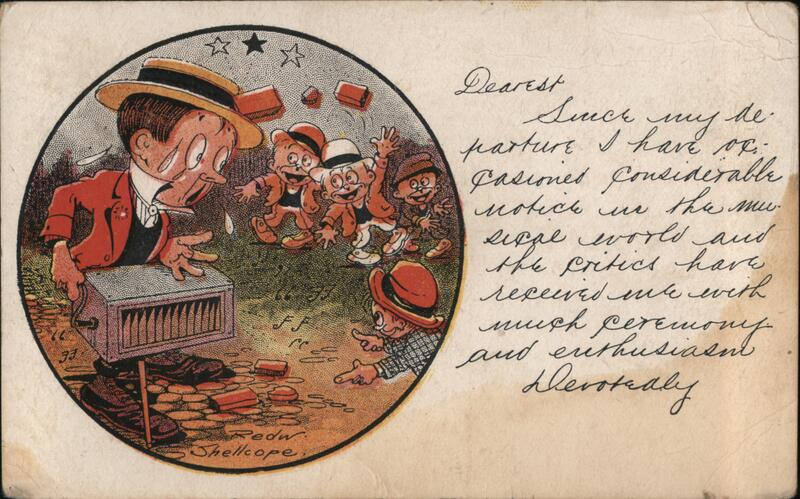 Dearest
Since my de-
parture I have oc-
casioned considerable
notice in the mu-
sical world and
the critics have
received me with
much ceremony
and enthusiasm
Devotedly
Redw.
Shellcope.